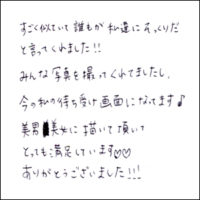 すごく似ていて誰もが私達にそっくりだ
と言ってくれました!!
みんな写真を撮ってくれてましたし、
今の私の待ち受け画面になってます♪
美男美女に描いて頂いて
とっても満足しています♡♡
ありがとうございました!!!